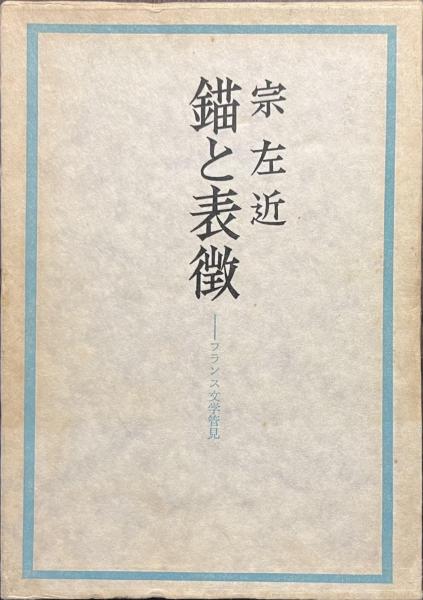 宗左近
錨と表徴
――フランス文学管見